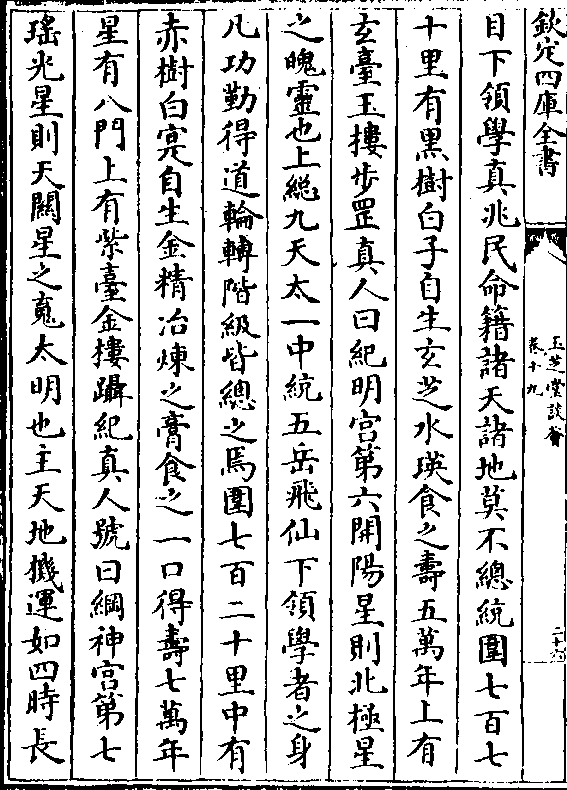 欽定四庫全書
玉芝堂談薈
卷十九
二十六
目下領學真兆民命籍諸天諸地莫不總統圍七百七
十里有黑樹白子自生玄芝水瑛食之壽五萬年上有
玄臺玉摟步罡真人曰紀明宫第六開陽星則北極星
之魄靈也上總九天太一中統五岳飛仙下領學者之身
凡功勤得道輪轉階級皆總之焉圍七百二十里中有
赤樹白實自生金精冶煉之膏食之一口得壽七萬年
星有八門上有紫臺金摟躡紀真人號曰綱神宫第七
瑤光星則天關星之䰟太明也主天地機運如四時長